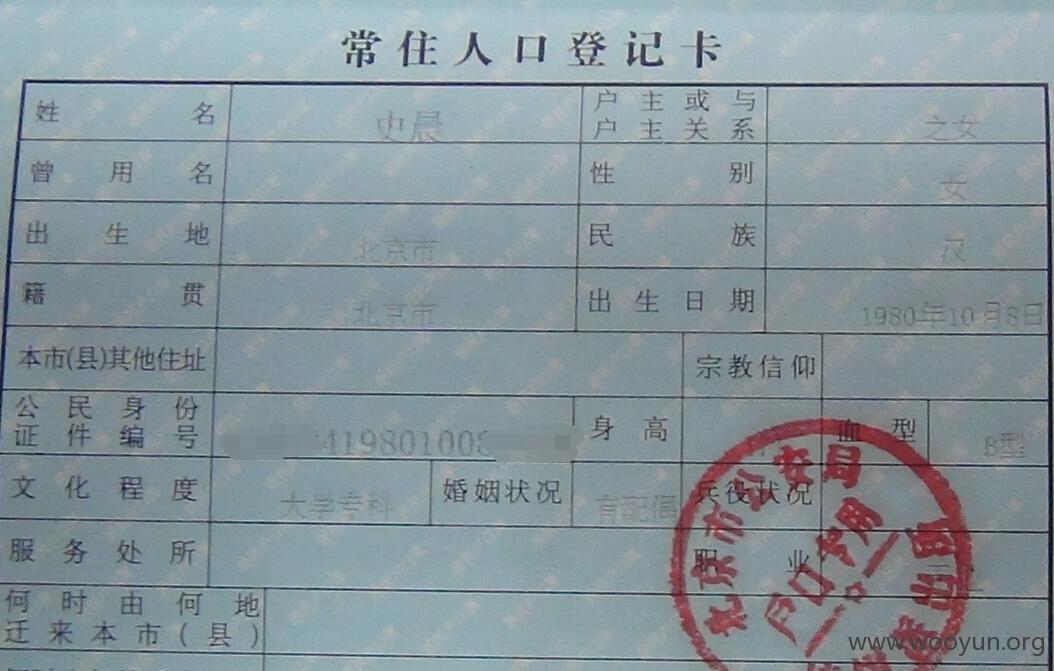 常住人口登记卡
姓名 史晨 户主或与户主关系 之女
曾用名 性别 女
出生地 北京市 民族 汉
籍贯 北京市 出生日期 1980年10月8日
本市(县)其他住址 宗教信仰
公民身份证件编号 419801008 身高 血型 B型
文化程度 大学专科 婚姻状况 有配偶 兵役状况
服务处所 职业
何时由何地迁来本市(县)
北京市公安局
户口专用
www.wooyun.org